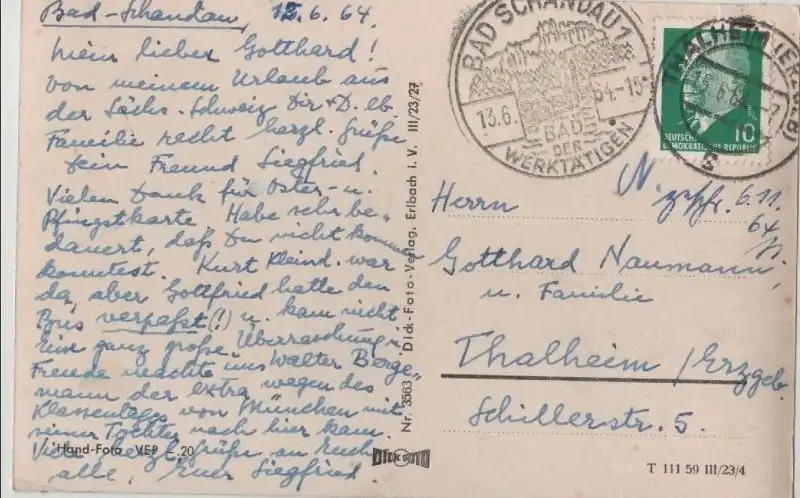 Bad-Schandau, 12.6.64.
Mein lieber Gotthard!
Von meinem Urlaub aus
der Sächs. Schweiz Dir + D. lb.
Familie recht herzl. Grüße
Dein Freund Siegfried.
Vielen Dank für Oster- u.
Pfingstkarte. Habe sehr be-
dauert, daß Du nicht kommen
konntest. Kurt Kleind. war
da, aber Gottfried hatte den
Bus verpaßt (!) u. kam nicht
Eine ganz große Überraschung u.
Freude machte uns Walter Berge-
mann der extra wegen des
Klassentages von München mit
seiner Tochter nach hier kam.
Viele herzl. Grüße an Euch
alle, Euer Siegfried.
Hand-Foto VEP -.20
Nr. 3563 Dick-Foto-Verlag, Erlbach i. V. III/23/27
DICK FOTO
BAD SCHANDAU 1
13.6. 64.-15
BAD
DER
WERKTÄTIGEN
THALHEIM (ERZGEB)
DEUTSCHE
DEMOKRATISCHE REPUBLIK
10
N 6.11.
64
Herrn
Gotthard Naumann
u. Familie
Thalheim/Erzgeb.
Schillerstr. 5.
T 111 59 III/23/4